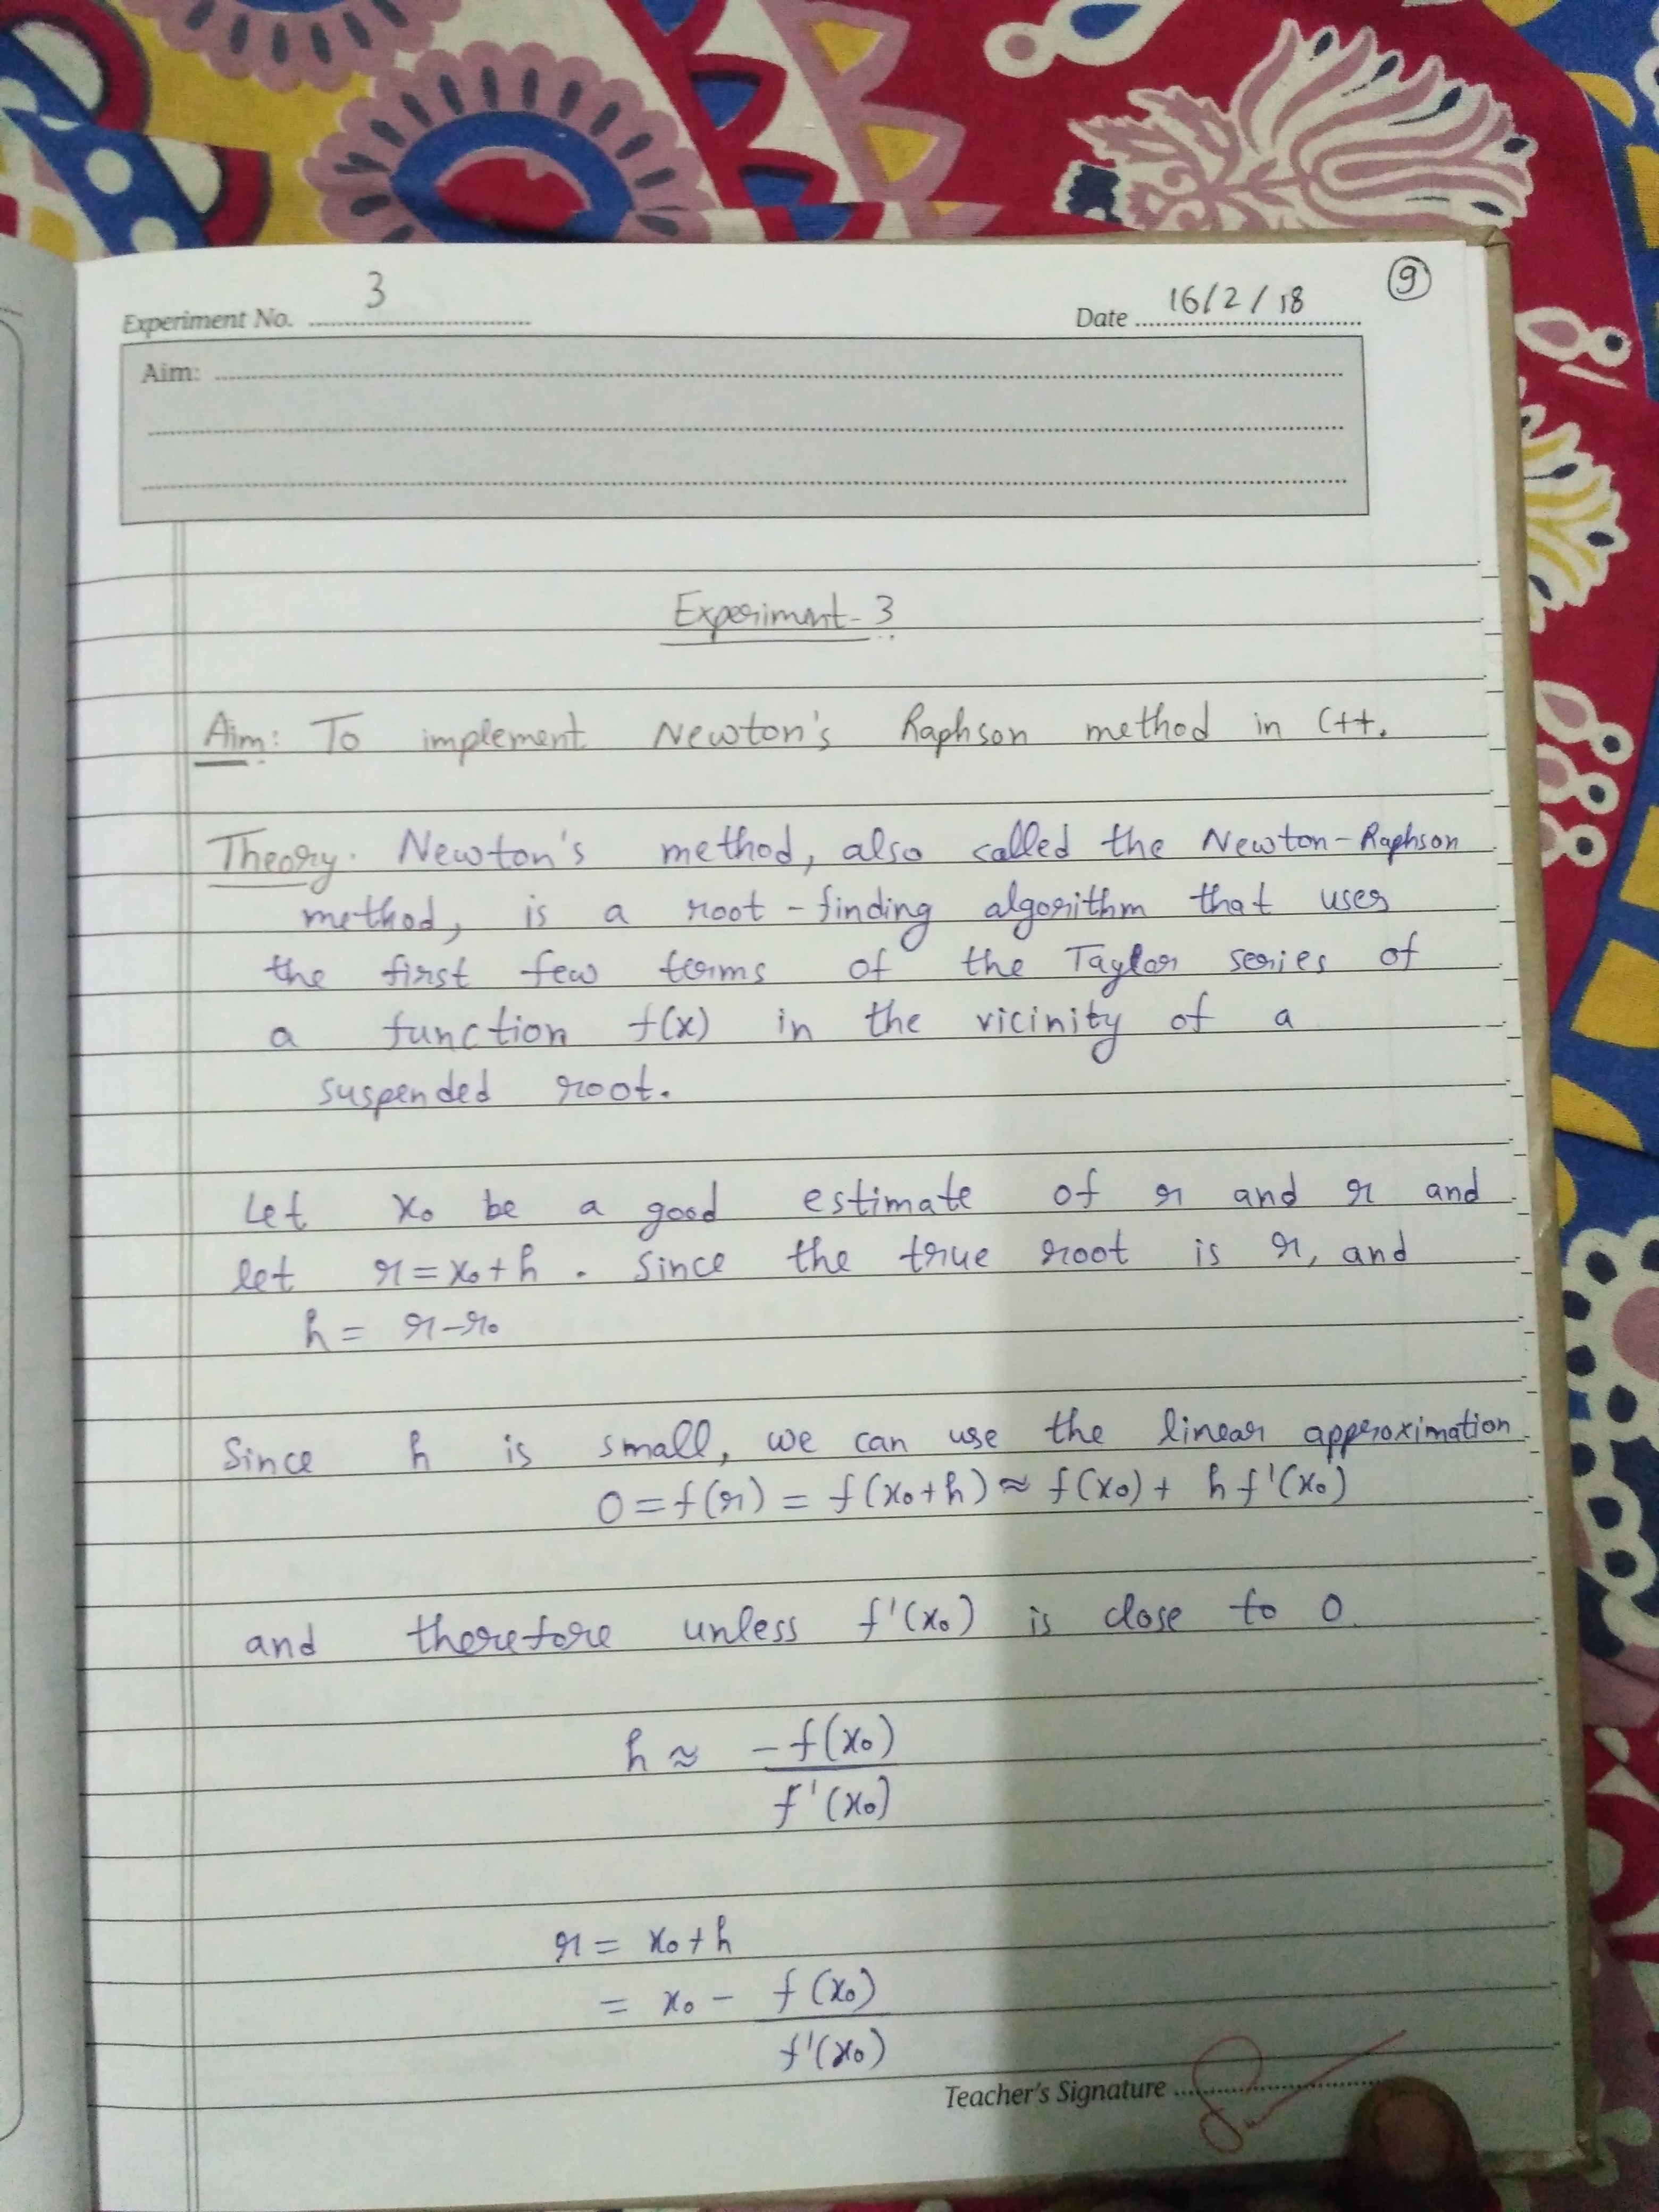 9
Experiment No. 3 Date 16/2/18
Aim:
Experiment-3
Aim: To implement Newton's Raphson method in C++.
Theory. Newton's method, also called the Newton-Raphson
method, is a root-finding algorithm that uses
the first few terms of the Taylor series of
a function f(x) in the vicinity of a
suspended root.
Let x₀ be a good estimate of r and r and
let r = x₀+h. Since the true root is r, and
h = r-r₀
Since h is small, we can use the linear approximation
0 = f(r) = f(x₀+h) ≈ f(x₀) + h f'(x₀)
and therefore unless f'(x₀) is close to 0.
h ≈ -f(x₀)
f'(x₀)
r = x₀+h
= x₀ - f(x₀)
f'(x₀)
Teacher's Signature